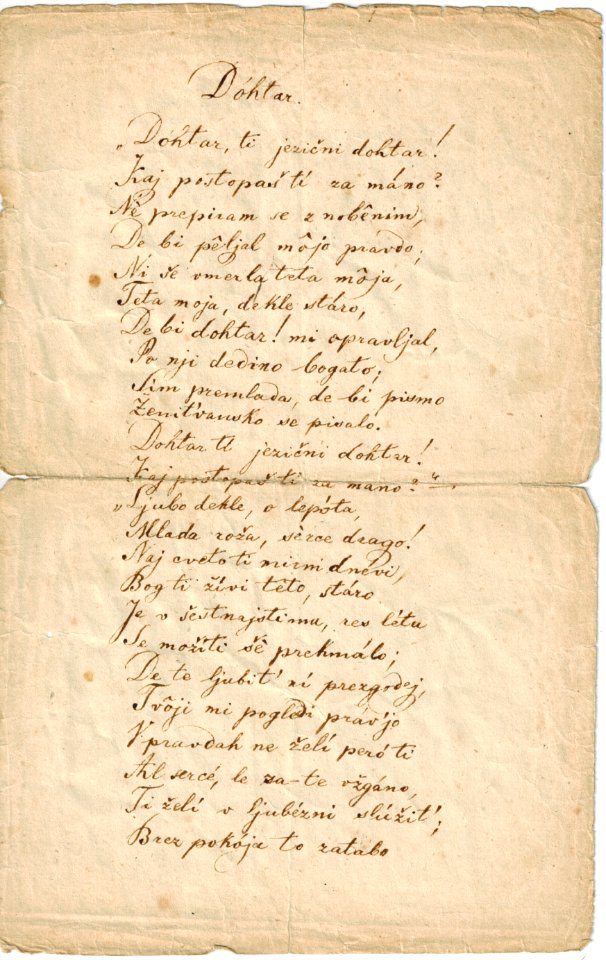 Dóhtar.
„Dóhtar, ti jezični dohtar!
Kaj postopaš tí za máno?
Nê prepiram se z nobênim,
De bi pêljal môjo pravdo;
Ni še vmerla teta môja,
Teta moja, dekle stáro,
De bi dohtar! mi opravljal,
Po nji dedino bogato;
Sim premlada, de bi pismo
Ženit'vansko se pisalo.
Dohtar tí jezični dohtar!
Kaj postopaš ti za mano?"
„Ljubo dekle, o lepóta,
Mlada roža, sèrce drago!
Naj cveto ti mirni dnévi,
Bog ti žívi této, stáro
Je v šestnajstimu, res létu
Se možíti šê prekmálo;
De te ljubit' ní prezgódej,
Tvôji mi poglédi práv'jo
V pravdah ne želí peró ti
Al sercé, le za-te vžgáno,
Ti želí v ljubézni slúžit';
Brez pokója to zatabo